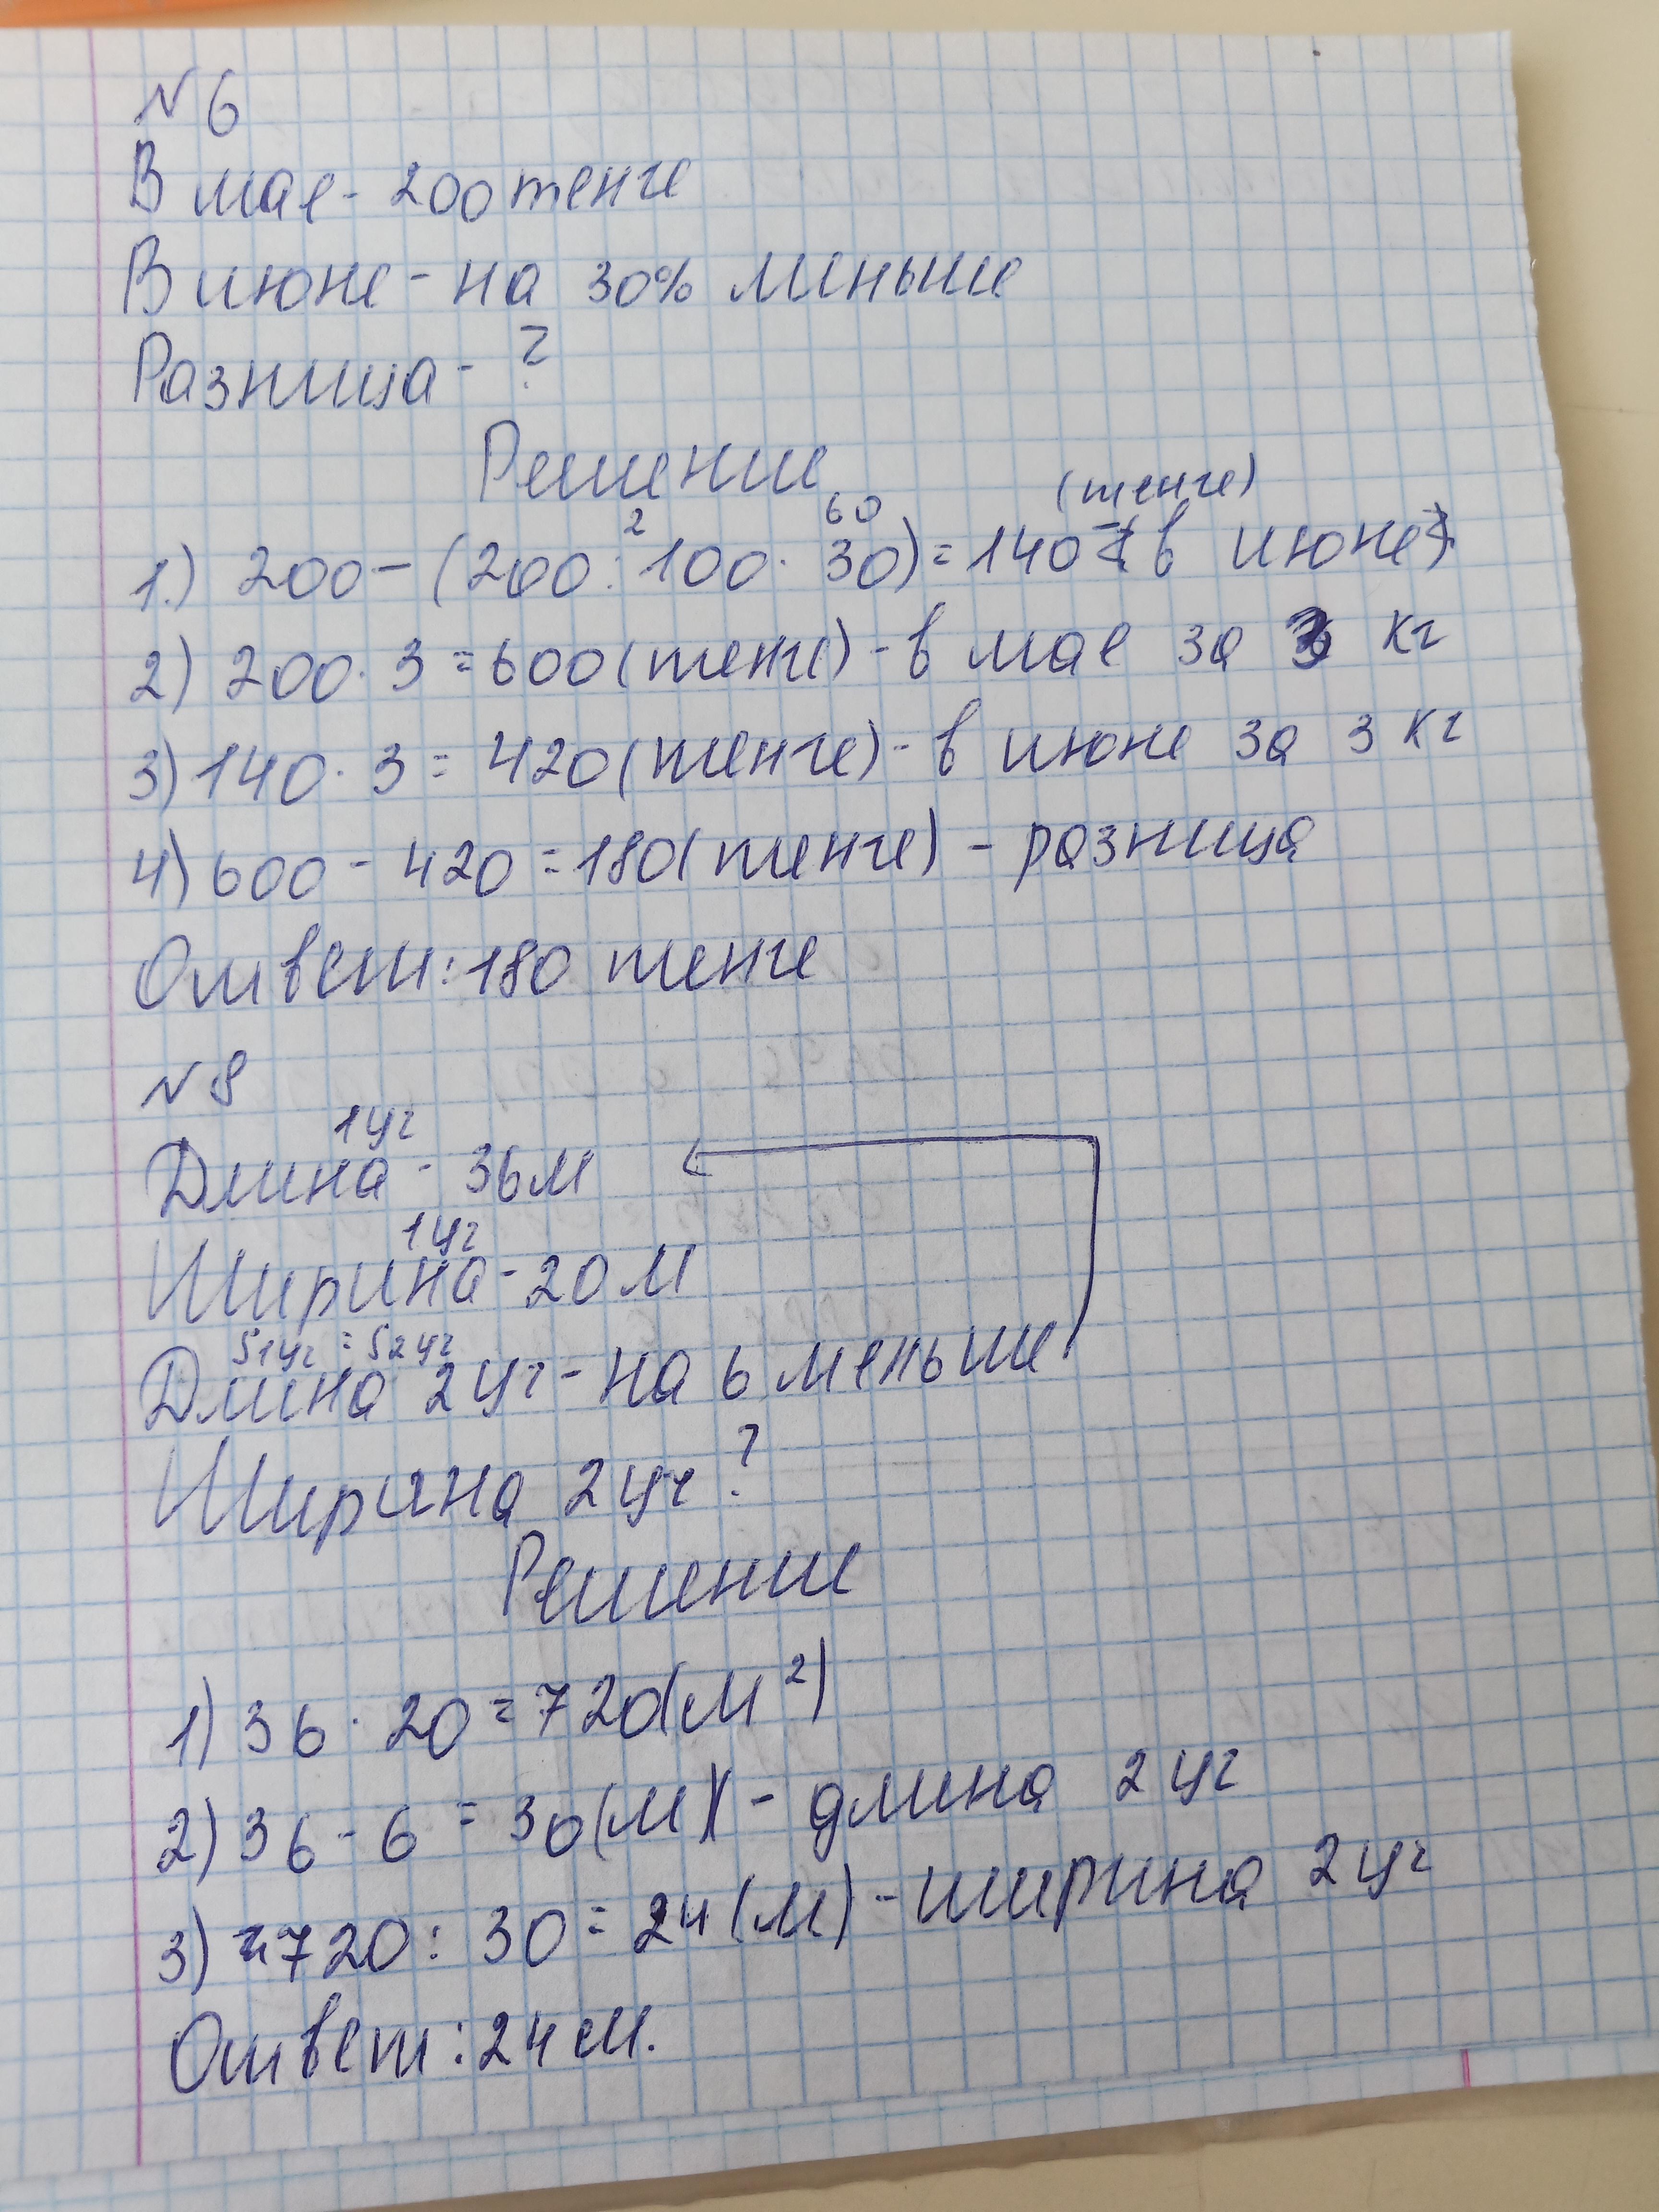 №6
В мае - 200 тенге
В июне - на 30% меньше
Разница - ?
Решение
2 60 (тенге)
1.) 200 - (200 : 100 · 30) = 140 - (в июне)
2) 200 · 3 = 600 (тенге) - в мае за 3 кг
3) 140 · 3 = 420 (тенге) - в июне за 3 кг
4) 600 - 420 = 180 (тенге) - разница
Ответ: 180 тенге
№8
1уч
Длина - 36м
1уч
Ширина - 20 м
S1уч = S2уч
Длина 2уч - на 6 меньше
Ширина 2уч ?
Решение
1) 36 · 20 = 720 (м²)
2) 36 - 6 = 30 (м) - длина 2 уч
3) 720 : 30 = 24 (м) - ширина 2 уч
Ответ: 24 м.